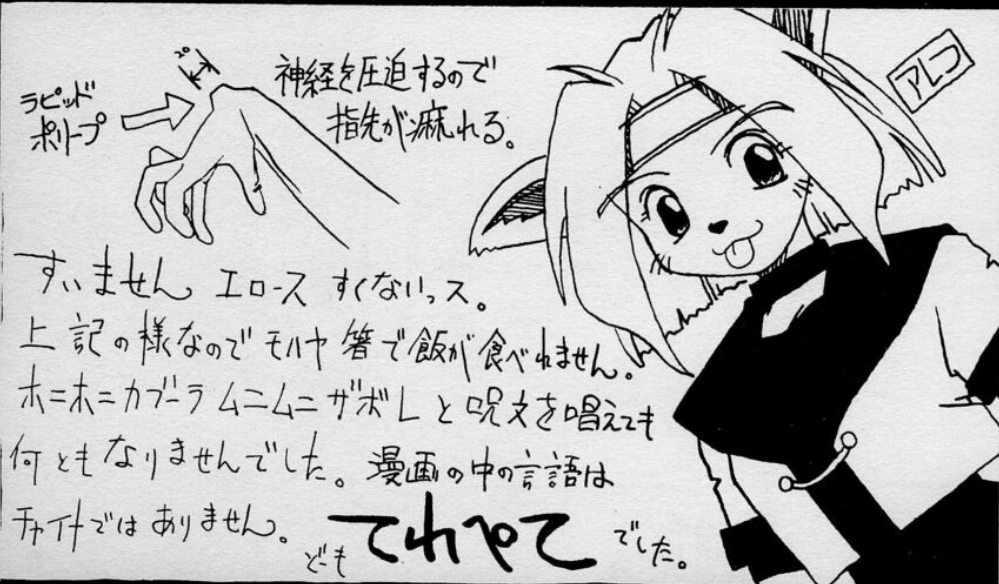 神経を圧迫するので
指先が麻れる。
ラピッド
ポリープ
アレフ
すいません。エロース すくないっス。
上記の様なのでモハヤ箸で飯が食べれません。
ホニホニカブーラ ムニムニザボレと呪文を唱えても
何ともなりませんでした。漫画の中の言語は
チャイナではありません。
どーも てれぺて でした。